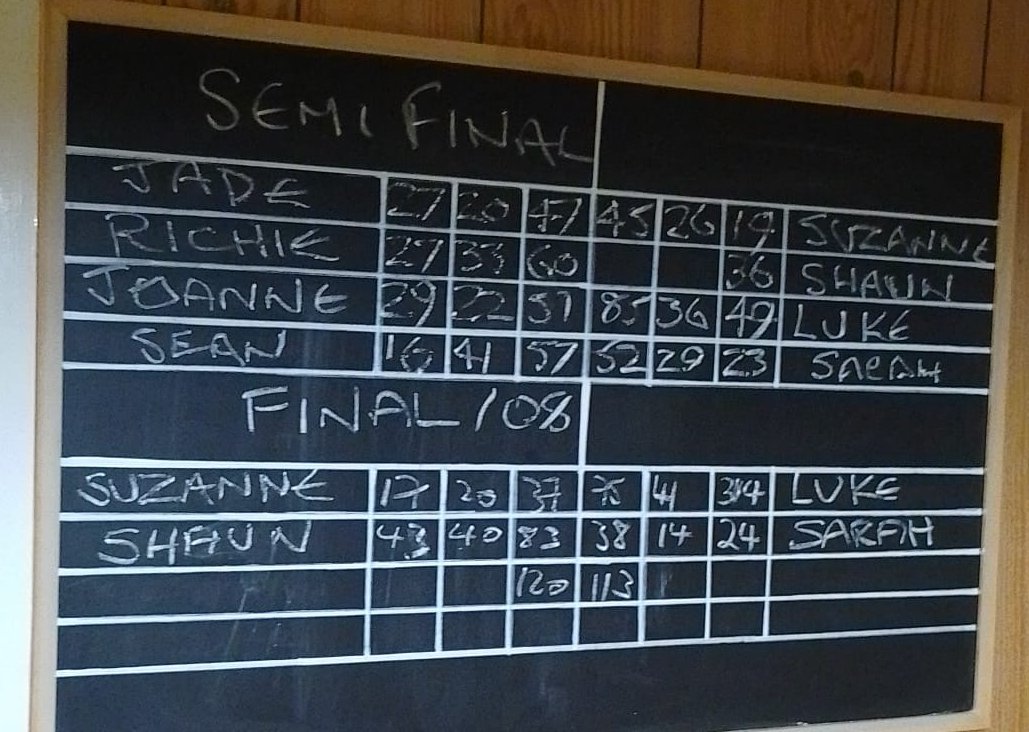 SEMI FINAL
JADE 27 20 47 45 26 19 SUZANNE
RICHIE 27 33 60 36 SHAUN
JOANNE 29 22 51 85 36 49 LUKE
SEAN 16 41 57 52 29 23 SARAH
FINAL /08
SUZANNE 17 20 37 75 41 34 LUKE
SHAUN 43 40 83 38 14 24 SARAH
120 113